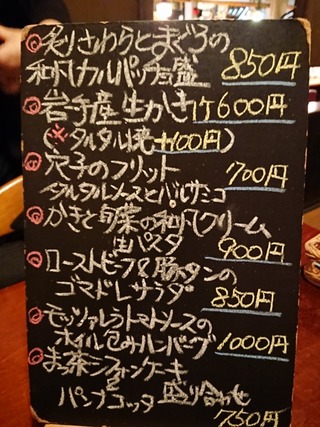 ◎炙りさわらとまぐろの
和風カルパッチョ盛 850円
◎岩手産生かき1ケ600円
(※タルタル焼+100円)
◎穴子のフリット 700円
タルタルソースとバルサミコ
◎かきと旬菜の和風クリーム
生パスタ 900円
◎ローストビーフ&豚タンの
ゴマドレサラダ 850円
◎モッツァレラトマトソースの
ホイル包みハンバーグ 1000円
◎お茶シフォンケーキ
と
パンナコッタ 盛り合わせ
750円